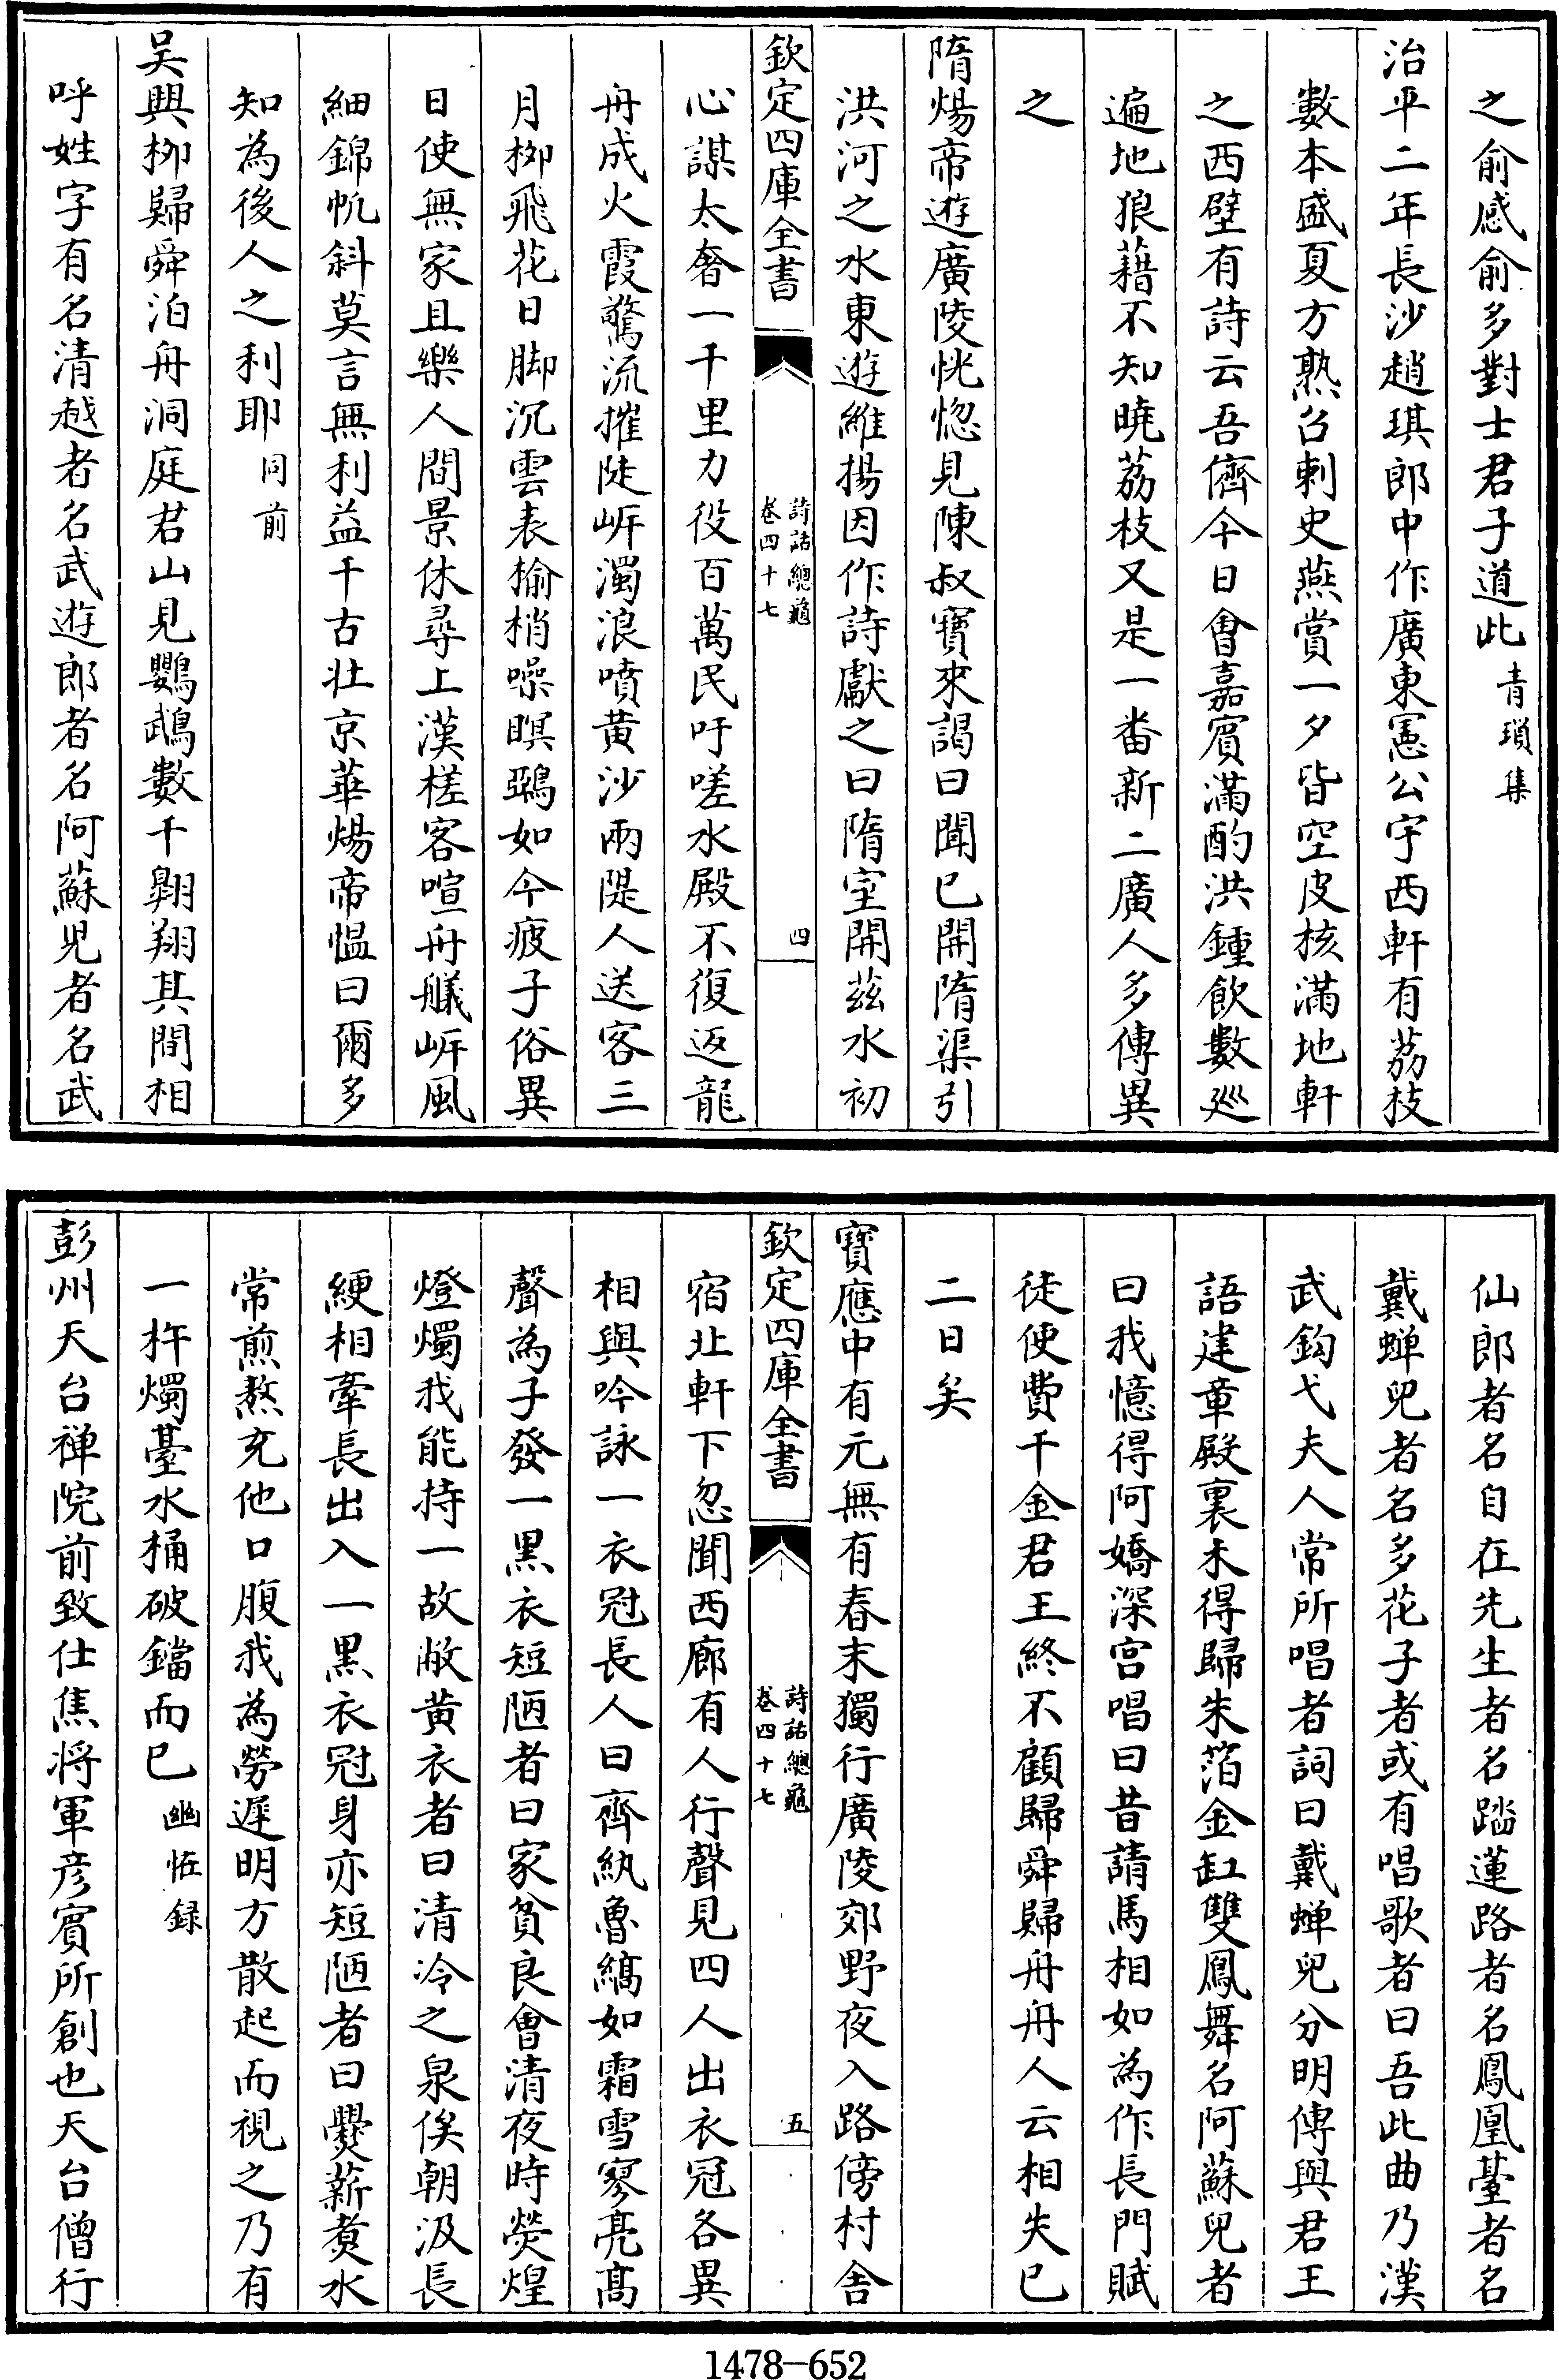 之俞感俞多對士君子道此青瑣集
治平二年長沙趙琪郎中作廣東憲公宇西軒有荔枝
數本盛夏方熟召刺史燕賞一夕皆空皮核滿地軒
之西壁有詩云吾儕今日會嘉賓滿酌洪鍾飲數廵
遍地狼藉不知曉荔枝又是一番新二廣人多傳異
之
隋煬帝遊廣陵恍惚見陳叔寶來謁曰聞已開隋渠引
洪河之水東遊維揚因作詩獻之曰隋室開茲水初
欽定四庫全書
詩話總龜
卷四十七
四
心謀太奢一千里力役百萬民吁嗟水殿不復返龍
舟成火霞驚流摧陡岍濁浪噴黄沙兩隄人送客三
月栁飛花日脚沉雲表榆梢噪暝鵶如今疲子俗異
日使無家且樂人間景休尋上漢槎客喧舟艤岍風
細錦帆斜莫言無利益千古壮京華煬帝愠曰爾多
知為後人之利耶同前
吴興栁歸舜泊舟洞庭君山見鸚鵡數千翱翔其間相
呼姓字有名清越者名武遊郎者名阿蘇兒者名武
仙郎者名自在先生者名踏蓮路者名鳳凰䑓者名
戴蝉兒者名多花子者或有唱歌者曰吾此曲乃漢
武鈎弋夫人常所唱者詞曰戴蝉兒分明傳與君王
語建章殿裏未得歸朱箔金缸雙鳳舞名阿蘇兒者
曰我憶得阿嬌深宫唱曰昔請馬相如為作長門賦
徒使費千金君王終不顧歸舜歸舟舟人云相失已
二日矣
寶應中有元無有春末獨行廣陵郊野夜入路傍村舎
欽定四庫全書
詩話總龜
卷四十七
五
宿北軒下忽聞西廊有人行聲見四人出衣冠各異
相與吟詠一衣冠長人曰齊紈魯縞如霜雪寥亮髙
聲為子發一黒衣短陋者曰家貧良會清夜時熒煌
燈燭我能持一故敝黄衣者曰清冷之泉俟朝汲長
綆相牽長出入一黒衣冠身亦短陋者曰㸑薪煑水
常煎熬充他口腹我為勞遲明方散起而視之乃有
一杵燭䑓水桶破鐺而已幽恠録
彭州天台禅院前致仕焦將軍彦賓所創也天台僧行
1478-652